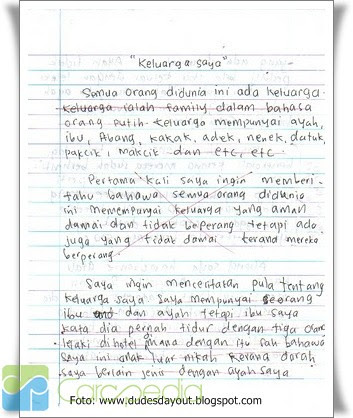 "Keluarga saya"
Semua orang didunia ini ada keluarga.
Keluarga ialah family dalam bahasa
orang putih. keluarga mempunyai ayah,
ibu, Abang, kakak, adek, nenek, datuk,
pakcik, Makcik dan etc, etc.
Pertama kali saya ingin memberi-
tahu bahawa semua orang didunia
ini memempunyai keluarga yang aman
damai dan tidak beperang tetapi ada
juga yang tidak damai kerana mereka
berperang.
Saya ingin menceritakan pula tentang
keluarga saya. Saya mempunyai seorang
ibu dan ayah tetapi ibu saya
kata dia pernah tidur dengan tiga orang
lelaki di hotel mana dengan itu sah bahawa
saya ini anak luar nikah kerana darah
saya berlain jenis dengan ayah saya
Carcepedia
Foto: www.dudesdayout.blogspot.com